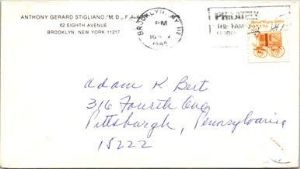 ANTHONY GERARD STIGLIANO, M.D., P.A.
62 EIGHTH AVENUE
BROOKLYN, NEW YORK 11217
BROOKLYN, NY 112
PM
PRIORITY
Adam K Bert
316 Fourth Ave
Pittsburgh, Pennsylvania
15222